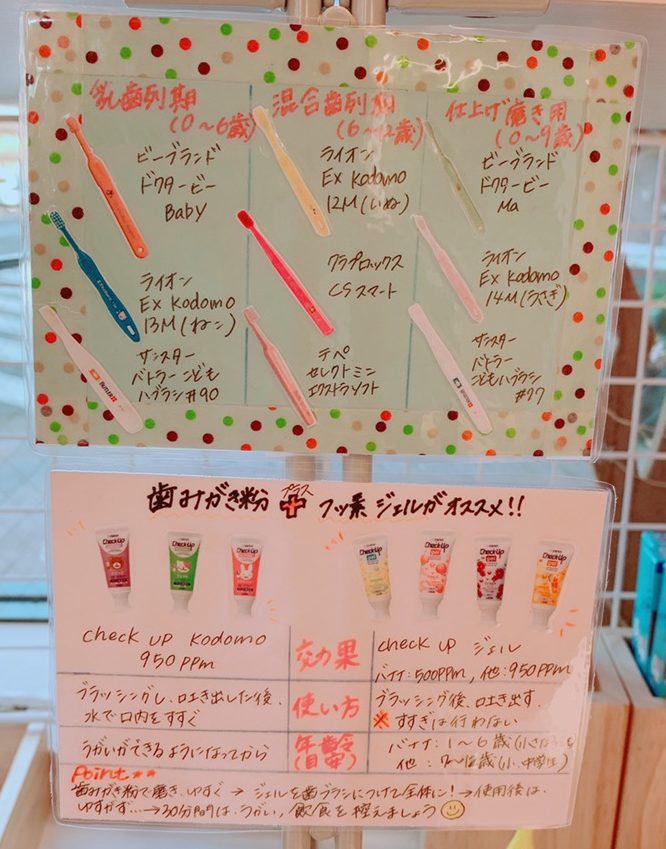 乳歯列期
(0〜6歳)
ビーブランド
ドクタービー
Baby
ライオン
Ex Kodomo
13M(ねこ)
サンスター
バトラー こども
ハブラシ #90
混合歯列期
(6〜12歳)
ライオン
Ex Kodomo
12M(いぬ)
クラプロックス
CSスマート
テペ
セレクトミニ
エクストラソフト
仕上げ磨き用
(0〜9歳)
ビーブランド
ドクタービー
Ma
ライオン
Ex Kodomo
14M(うさぎ)
サンスター
バトラー
こどもハブラシ
#77
プラス
歯みがき粉 + フッ素ジェルがオススメ!!
Check-Up
Check-Up
Check-Up
Check-Up
gel
Check-Up
gel
Check-Up
gel
Check-Up
gel
check up kodomo
950ppm
効果
check up ジェル
バナナ:500ppm, 他:950ppm
ブラッシングし、吐き出した後、
水で口内をすすぐ
使い方
ブラッシング後、吐き出す。
※すすぎは行わない
うがいができるようになってから
年齢
(目安)
バナナ:1〜6歳
他:7〜12歳(小、中学生)
Point★★
歯みがき粉で磨き、ゆすぐ → ジェルを歯ブラシにつけて全体に! → 使用後は、
ゆすがず…→30分間は、うがい, 飲食を控えましょう